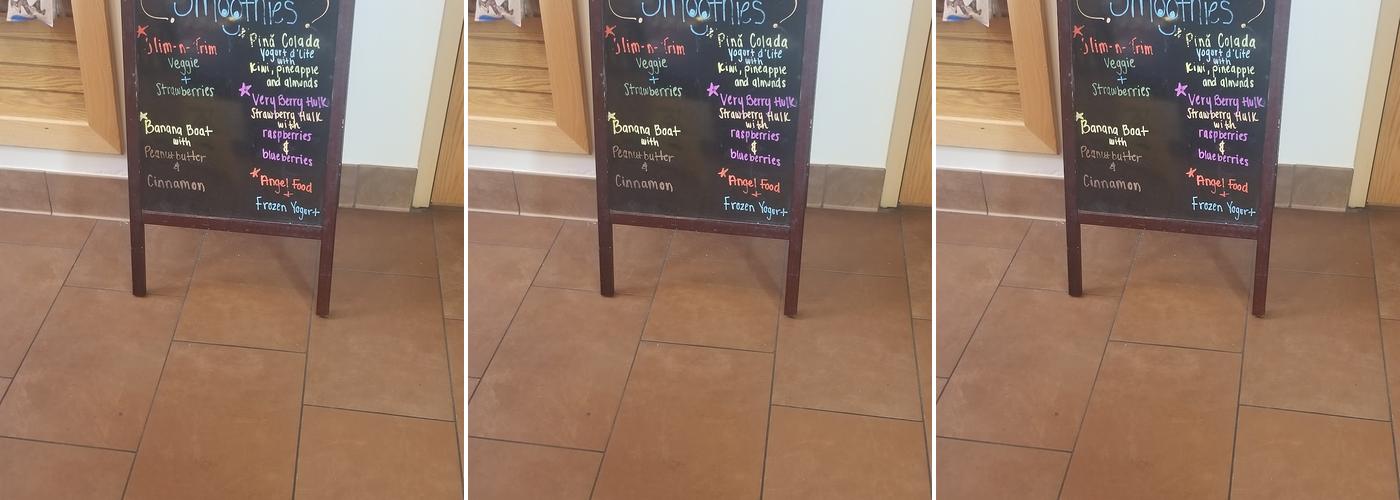 Smoothies
Slim-n-Trim
Veggie
+
Strawberries
Banana Boat
with
Peanutbutter
&
Cinnamon
Piná Colada
Yogort d'Lite
with
Kiwi, pineapple
and almonds
Very Berry Hulk
Strawberry Hulk
with
raspberries
&
blueberries
Angel Food
+
Frozen Yogurt
Smoothies
Slim-n-Trim
Veggie
+
Strawberries
Banana Boat
with
Peanutbutter
&
Cinnamon
Piná Colada
Yogort d'Lite
with
Kiwi, pineapple
and almonds
Very Berry Hulk
Strawberry Hulk
with
raspberries
&
blueberries
Angel Food
+
Frozen Yogurt
Smoothies
Slim-n-Trim
Veggie
+
Strawberries
Banana Boat
with
Peanutbutter
&
Cinnamon
Piná Colada
Yogort d'Lite
with
Kiwi, pineapple
and almonds
Very Berry Hulk
Strawberry Hulk
with
raspberries
&
blueberries
Angel Food
+
Frozen Yogurt